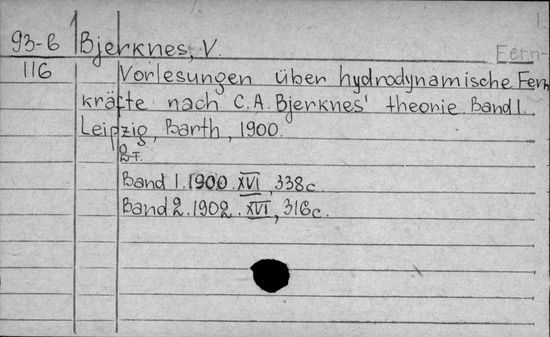 93-6 Bjerknes, V.
Fern-
116 Vorlesungen über hydrodynamische Fern
kräfte nach C.A. Bjerknes' theorie. Band 1.
Leipzig, Barth, 1900.
2т.
Band 1. 1900. XVI, 338c.
Band 2. 1902. XVI, 316c.